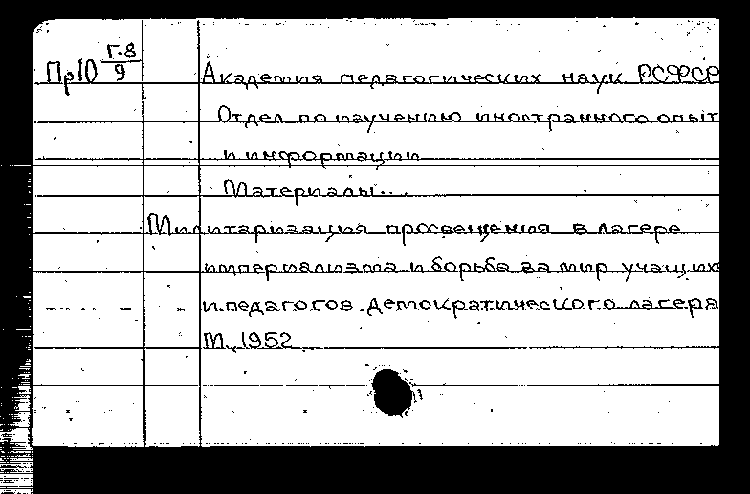 Пр10 Г.8/9
Академия педагогических наук РСФСР
Отдел по изучению иностранного опыт
и информации
Материалы...
Милитаризация просвещения в лагере
империализма и борьба за мир учащих
и педагогов демократического лагеря
М., 1952